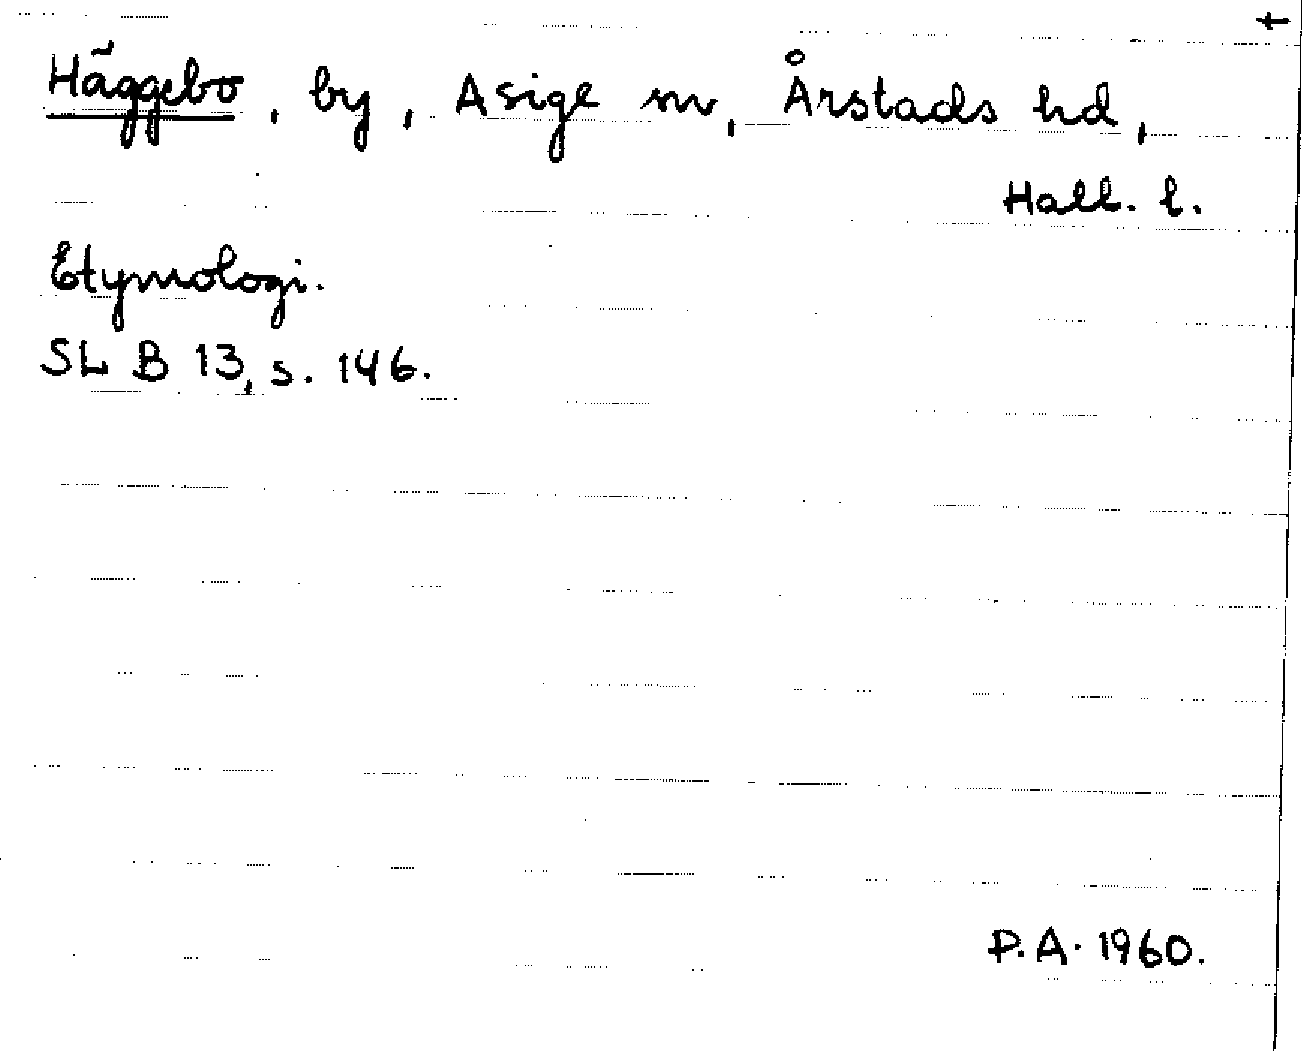 t
Häggebo, by, Asige sn, Årstads hd,
Hall. l.
Etymologi.
SL B 13, s. 146.
P.A. 1960.